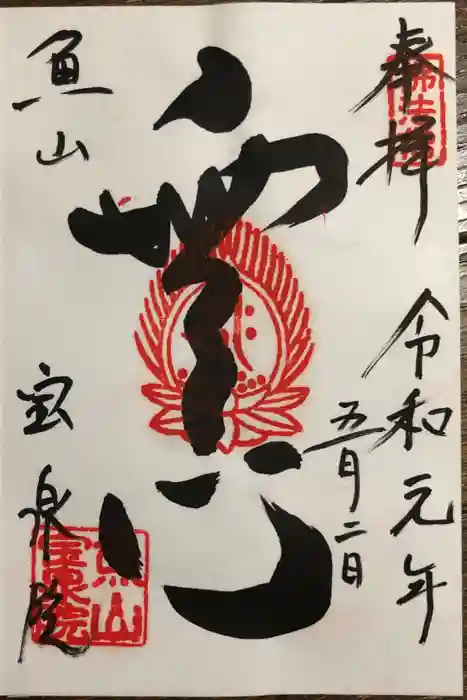 奉拝
令和元年
五月二日
無心
魚山
宝泉院
魚山
宝泉院